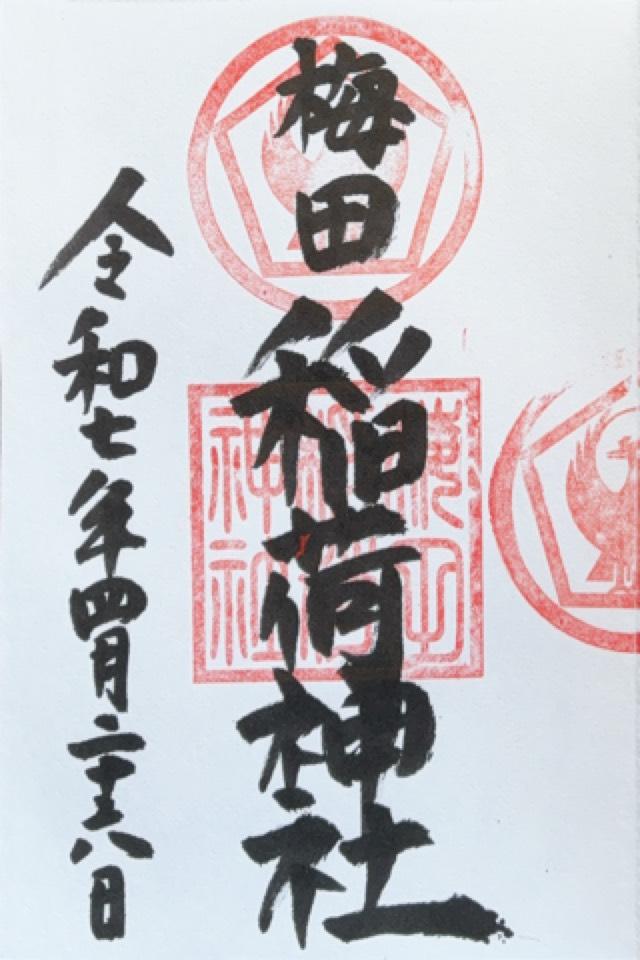 梅田
稲荷神社
令和七年四月二十八日
神社